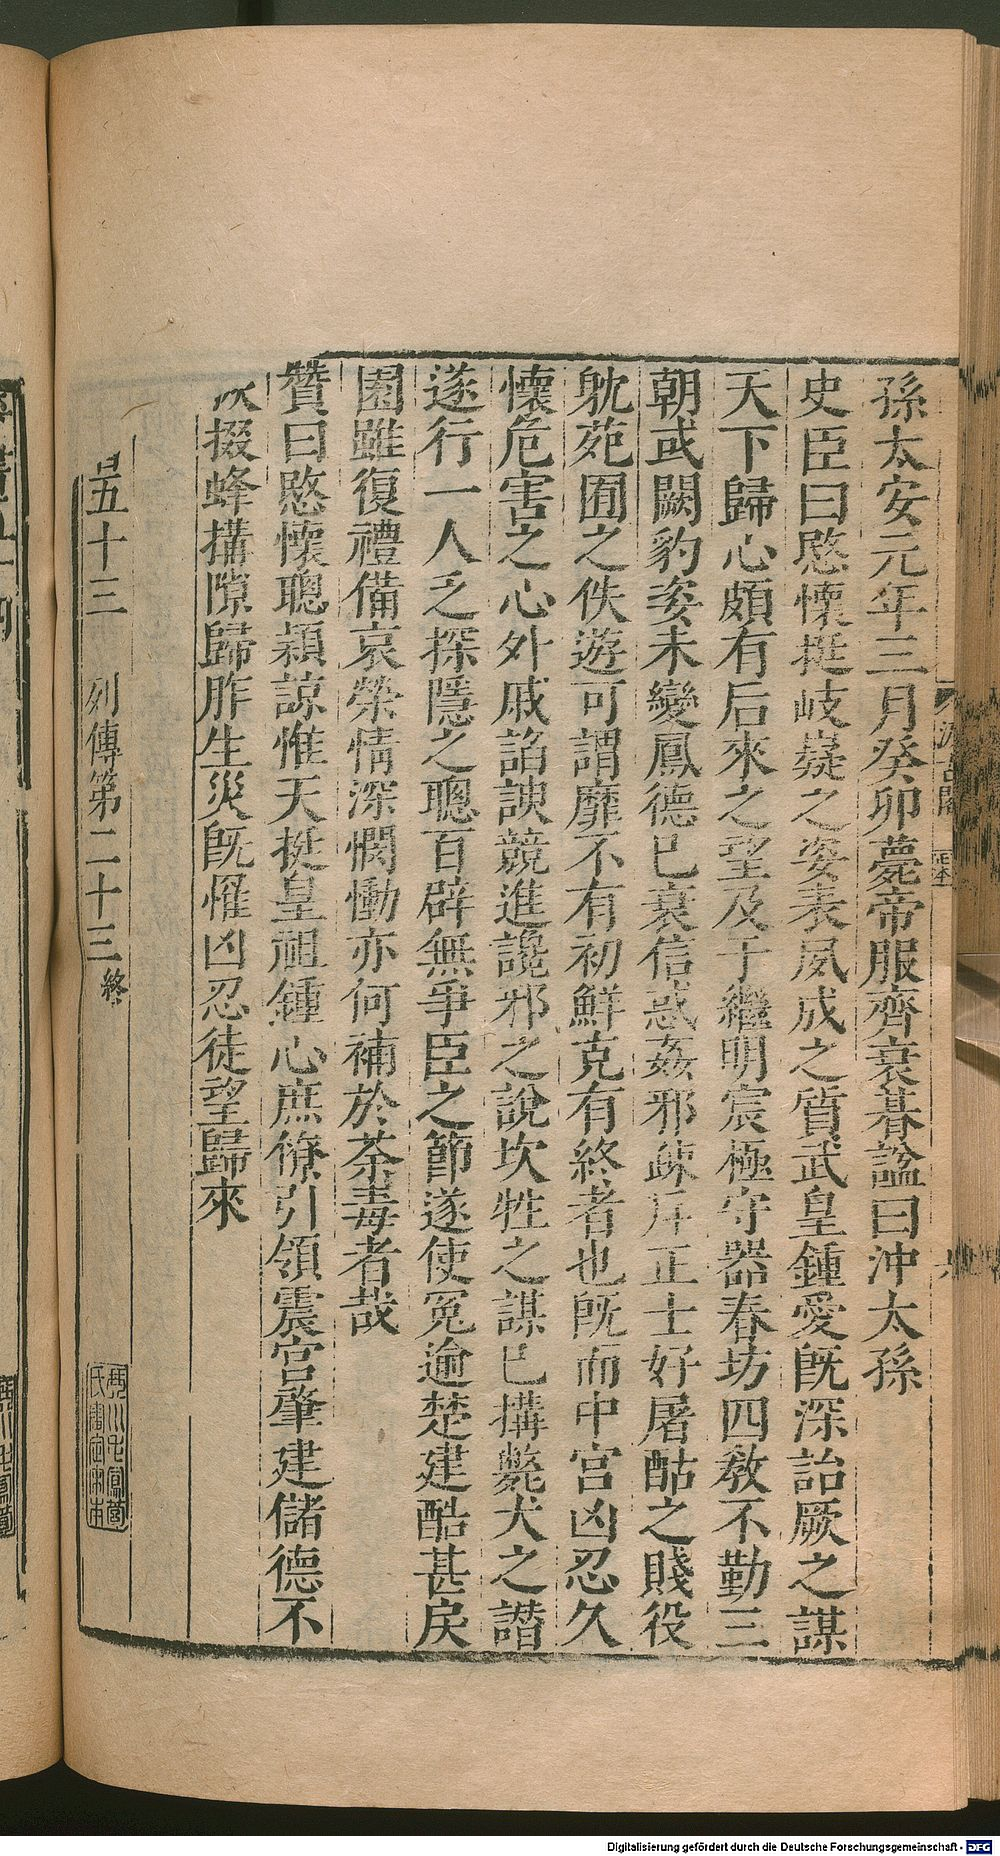 孫太安元年三月癸卯薨帝服齊衰朞諡曰沖太孫
史臣曰愍懷挺岐嶷之姿表夙成之質武皇鍾愛旣深詒厥之謀
天下歸心頗有后來之望及于繼明宸極守器春坊四敎不勤三
朝或闕豹姿未變鳳德已衰信惑姦邪疎斥正士好屠酤之賤役
躭苑囿之佚遊可謂靡不有初鮮克有終者也旣而中宮凶忍久
懷危害之心外戚諂諛競進讒邪之說坎牲之謀已搆斃犬之譖
遂行一人乏探隱之聰百辟無爭臣之節遂使冤逾楚建酷甚戾
園雖復禮備哀榮情深憫慟亦何補於荼毒者哉
贊曰愍懷聰頴諒惟天挺皇祖鍾心庶僚引領震宮肇建儲德不
掇蜂搆隙歸胙生災旣罹凶忍徒望歸來
五十三 列傳第二十三終
正本
Digitalisierung gefördert durch die Deutsche Forschungsgemeinschaft - DFG